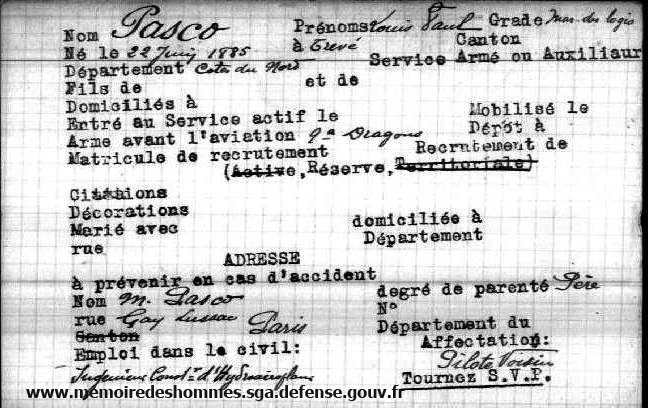 Nom Pasco Prénoms Louis Paul Grade Mar. des logis
Né le 22 Juin 1885 à Trévé Canton
Département Côtes du Nord Service Armé ou Auxiliaire
Fils de et de
Domiciliés à
Entré au Service actif le Mobilisé le
Arme avant l'aviation 9e Dragons Dépôt à
Matricule de recrutement Recrutement de
(Active, Réserve, Territoriale)
Citations
Décorations
Marié avec domiciliée à
rue Département
ADRESSE
à prévenir en cas d'accident
Nom M. Pasco degré de parenté Père
rue Gay Lussac Paris N°
Canton Département du
Emploi dans le civil: Affectation:
Ingénieur Const. d'Hydroaéroplanes Pilote Voisin
Tournez S.V.P.
www.memoiredeshommes.sga.defense.gouv.fr